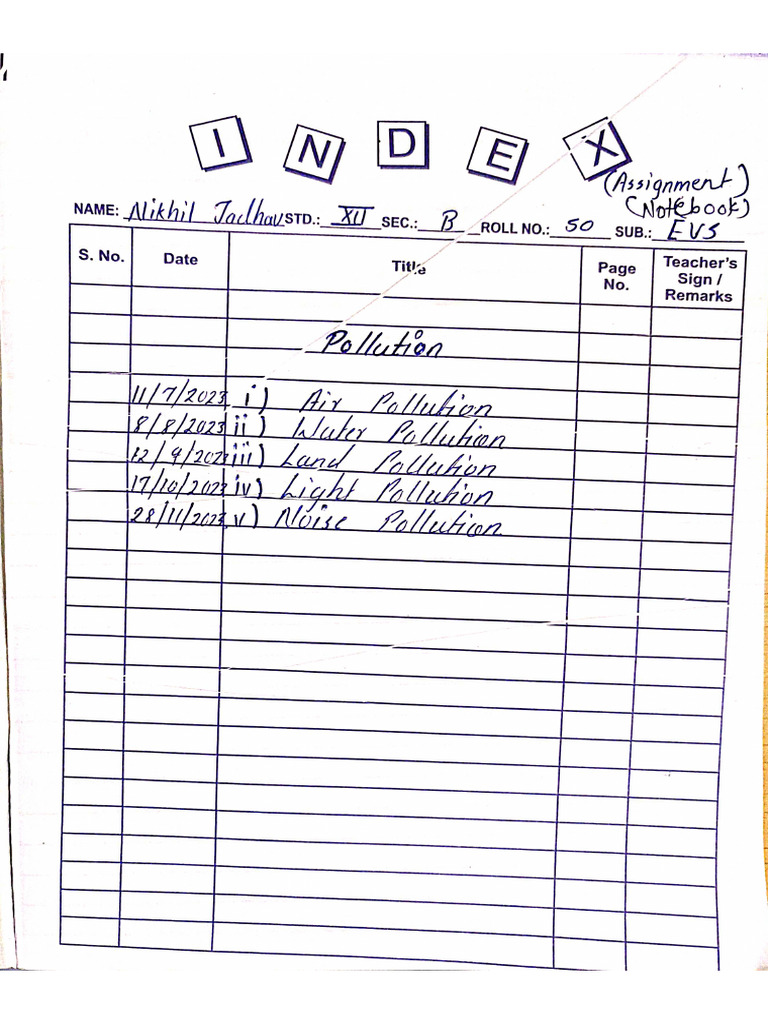 INDEX
(Assignment)
(Notebook)
NAME: Nikhil Jadhav STD.: XII SEC.: B ROLL NO.: 50 SUB.: EVS
S. No. Date Title Page No. Teacher's Sign / Remarks
Pollution
11/7/2023 i) Air Pollution
8/8/2023 ii) Water Pollution
12/9/2023 iii) Land Pollution
17/10/2023 iv) Light Pollution
28/11/2023 v) Noise Pollution